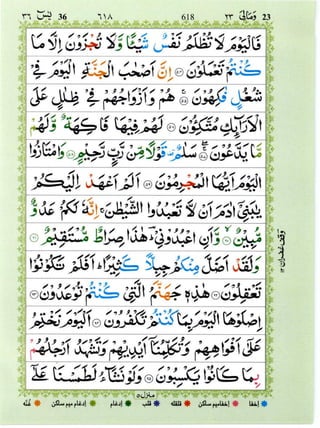 يٰسٓ ٣٦ 36 ٦١٨ 618 وَمَالِيَ ٢٣ 23
فَالْيَوْمَ لَا تُظْلَمُ نَفْسٌ شَيْـًٔا وَّلَا تُجْزَوْنَ اِلَّا مَا
كُنْتُمْ تَعْمَلُوْنَ ۝۵۴ اِنَّ اَصْحٰبَ الْجَنَّةِ الْيَوْمَ فِيْ
شُغُلٍ فٰكِهُوْنَ ۝۵۵ هُمْ وَاَزْوَاجُهُمْ فِيْ ظِلٰلٍ عَلَى
الْاَرَآئِكِ مُتَّكِـُٔوْنَ ۝۵۶ لَهُمْ فِيْهَا فَاكِهَةٌ وَّلَهُمْ
مَّا يَدَّعُوْنَ ۝۵۷ سَلٰمٌ قَوْلًا مِّنْ رَّبٍّ رَّحِيْمٍ ۝۵۸ وَامْتَازُوا
الْيَوْمَ اَيُّهَا الْمُجْرِمُوْنَ ۝۵۹ اَلَمْ اَعْهَدْ اِلَيْكُمْ
يٰبَنِيْٓ اٰدَمَ اَنْ لَّا تَعْبُدُوا الشَّيْطٰنَ ۚ اِنَّهٗ لَكُمْ عَدُوٌّ
مُّبِيْنٌ ۝۶۰ وَّاَنِ اعْبُدُوْنِيْ ؔ هٰذَا صِرَاطٌ مُّسْتَقِيْمٌ ۝۶۱
وَلَقَدْ اَضَلَّ مِنْكُمْ جِبِلًّا كَثِيْرًا ؕ اَفَلَمْ تَكُوْنُوْا
تَعْقِلُوْنَ ۝۶۲ هٰذِهٖ جَهَنَّمُ الَّتِيْ كُنْتُمْ تُوْعَدُوْنَ ۝۶۳
اِصْلَوْهَا الْيَوْمَ بِمَا كُنْتُمْ تَكْفُرُوْنَ ۝۶۴ اَلْيَوْمَ نَخْتِمُ
عَلٰٓى اَفْوَاهِهِمْ وَتُكَلِّمُنَآ اَيْدِيْهِمْ وَتَشْهَدُ اَرْجُلُهُمْ
بِمَا كَانُوْا يَكْسِبُوْنَ ۝۶۵ وَلَوْ نَشَآءُ لَطَمَسْنَا عَلٰٓى
وقف غفران
منزل ۵
اخفا اخفامیم ساکن قلقله قلب ادغام ادغام میم ساکن غنّه